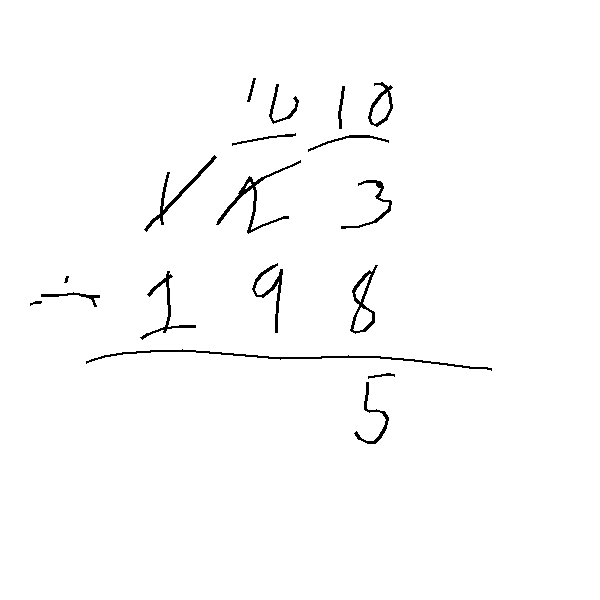 10 10
1 2 3
- 1 9 8
5